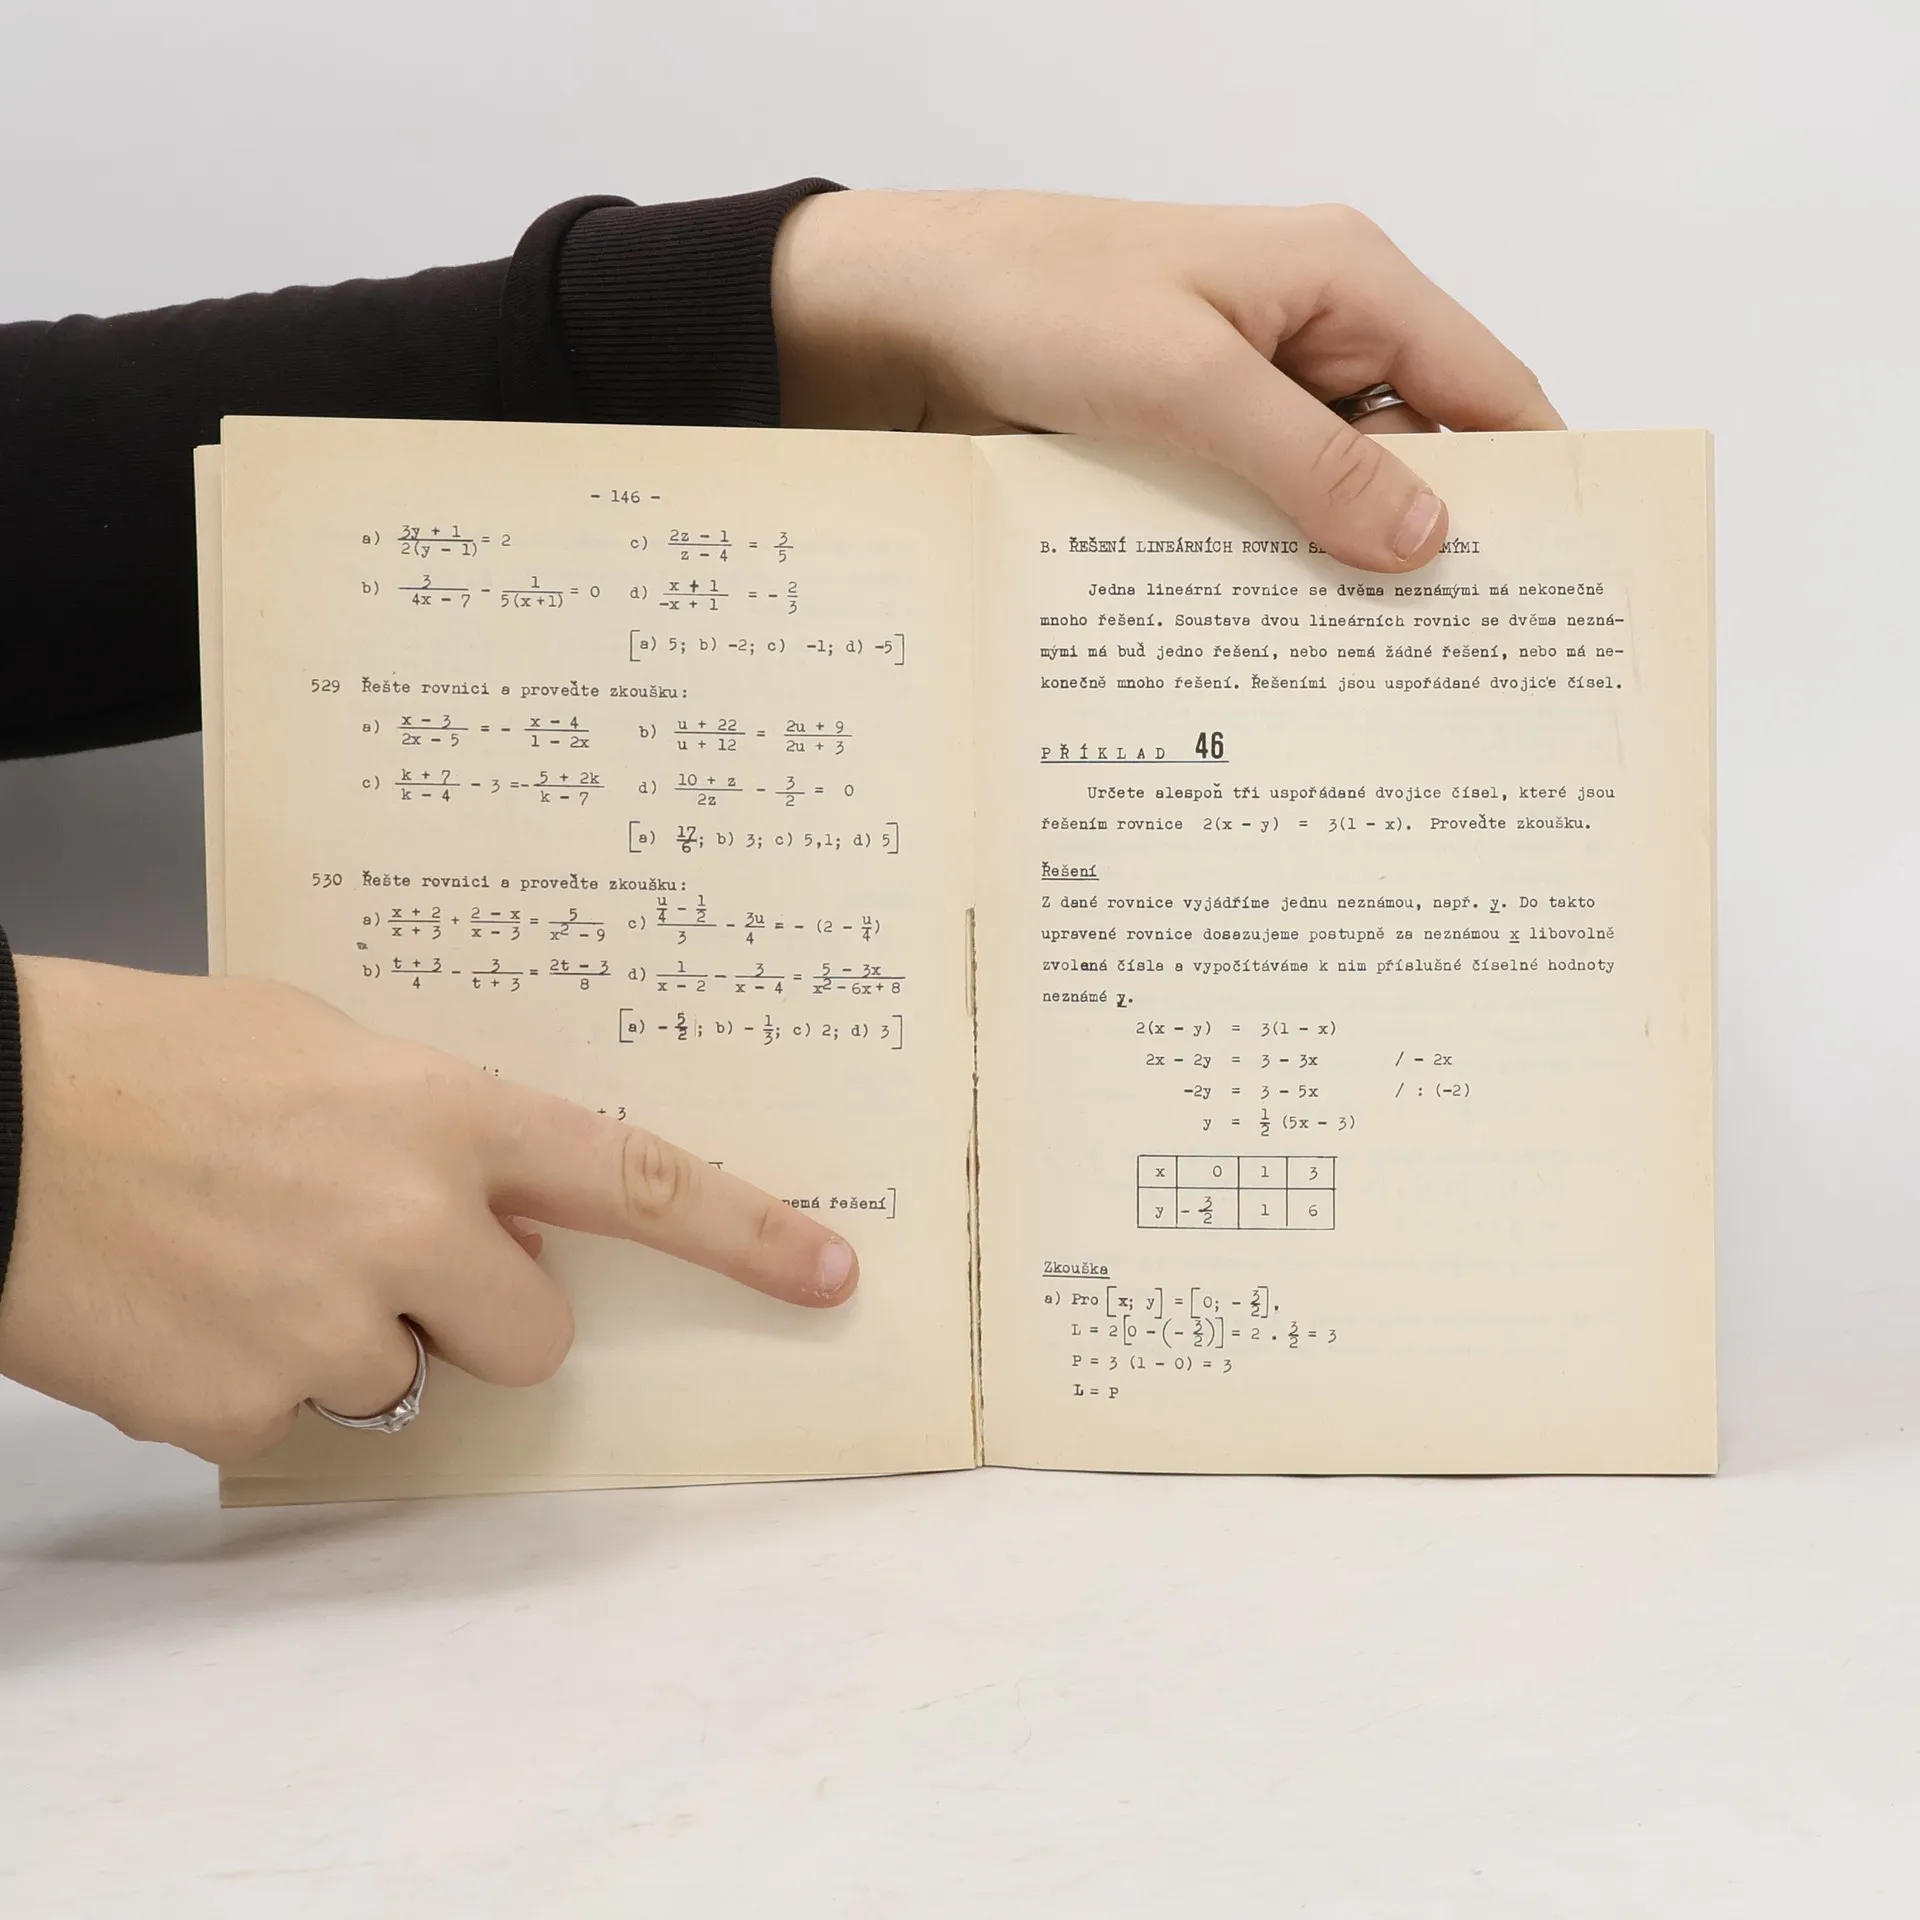 - 146 -
a) (3y + 1)/(2(y - 1)) = 2 c) (2z - 1)/(z - 4) = 3/5
b) 3/(4x - 7) - 1/(5(x+1)) = 0 d) (x + 1)/(-x + 1) = - 2/3
[a) 5; b) -2; c) -1; d) -5]
529 Řešte rovnici a proveďte zkoušku:
a) (x - 3)/(2x - 5) = - (x - 4)/(1 - 2x) b) (u + 22)/(u + 12) = (2u + 9)/(2u + 3)
c) (k + 7)/(k - 4) - 3 = - (5 + 2k)/(k - 7) d) (10 + z)/(2z) - 3/2 = 0
[a) 17/6; b) 3; c) 5,1; d) 5]
530 Řešte rovnici a proveďte zkoušku:
a) (x + 2)/(x + 3) + (2 - x)/(x - 3) = 5/(x² - 9) c) (u/4 - 1/2)/3 - 3u/4 = - (2 - u/4)
b) (t + 3)/4 - 3/(t + 3) = (2t - 3)/8 d) 1/(x - 2) - 3/(x - 4) = (5 - 3x)/(x² - 6x + 8)
[a) - 5/2; b) - 1/3; c) 2; d) 3]
+ 3
nemá řešení]
B. ŘEŠENÍ LINEÁRNÍCH ROVNIC
Jedna lineární rovnice se dvěma neznámými má nekonečně
mnoho řešení. Soustava dvou lineárních rovnic se dvěma nezná-
mými má buď jedno řešení, nebo nemá žádné řešení, nebo má ne-
konečně mnoho řešení. Řešeními jsou uspořádané dvojice čísel.
PŘÍKLAD 46
Určete alespoň tři uspořádané dvojice čísel, které jsou
řešením rovnice 2(x - y) = 3(1 - x). Proveďte zkoušku.
Řešení
Z dané rovnice vyjádříme jednu neznámou, např. y. Do takto
upravené rovnice dosazujeme postupně za neznámou x libovolně
zvolená čísla a vypočítáváme k nim příslušné číselné hodnoty
neznámé y.
2(x - y) = 3(1 - x)
2x - 2y = 3 - 3x / - 2x
-2y = 3 - 5x / : (-2)
y = 1/2 (5x - 3)
x 0 1 3
y - 3/2 1 6
Zkouška
a) Pro [x; y] = [0; - 3/2].
L = 2[0 - (- 3/2)] = 2 . 3/2 = 3
P = 3 (1 - 0) = 3
L = P